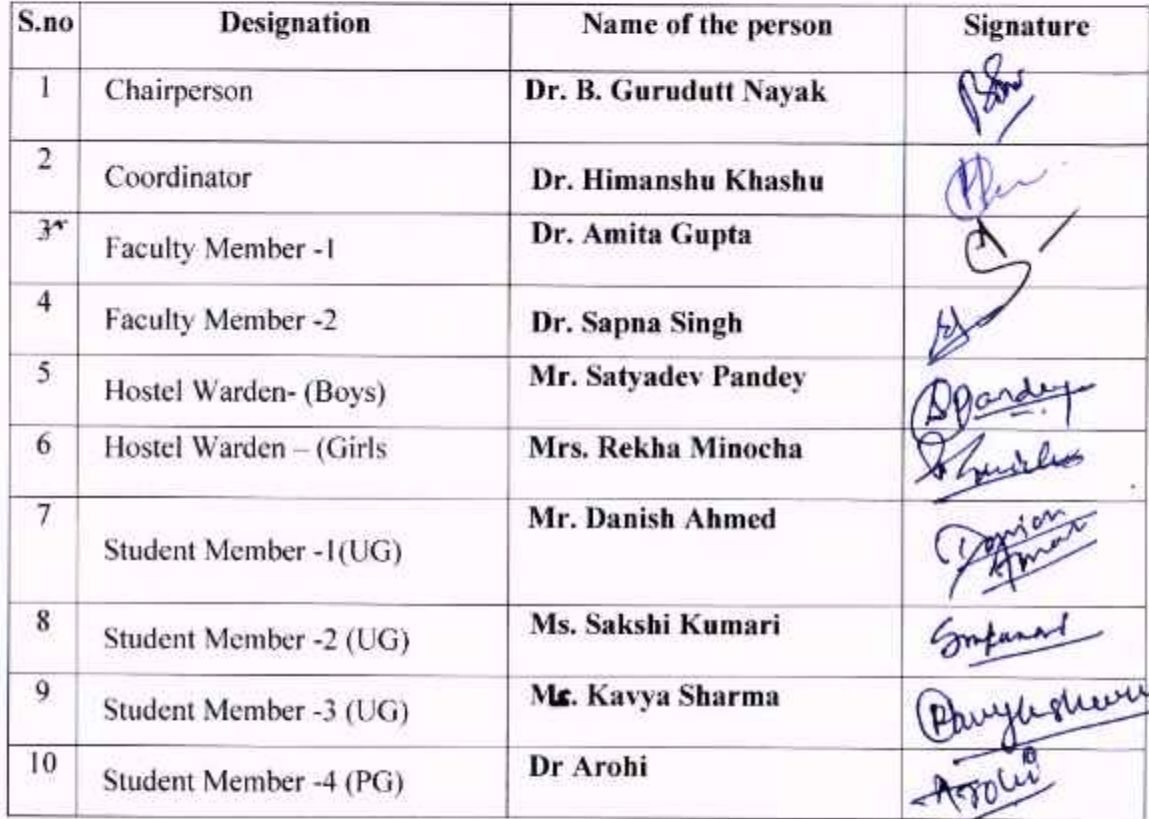 S.no Designation Name of the person Signature
1 Chairperson Dr. B. Gurudutt Nayak
2 Coordinator Dr. Himanshu Khashu
3 Faculty Member -1 Dr. Amita Gupta
4 Faculty Member -2 Dr. Sapna Singh
5 Hostel Warden- (Boys) Mr. Satyadev Pandey SPandey
6 Hostel Warden – (Girls Mrs. Rekha Minocha
7 Student Member -1(UG) Mr. Danish Ahmed
8 Student Member -2 (UG) Ms. Sakshi Kumari
9 Student Member -3 (UG) Ms. Kavya Sharma
10 Student Member -4 (PG) Dr Arohi Arohi